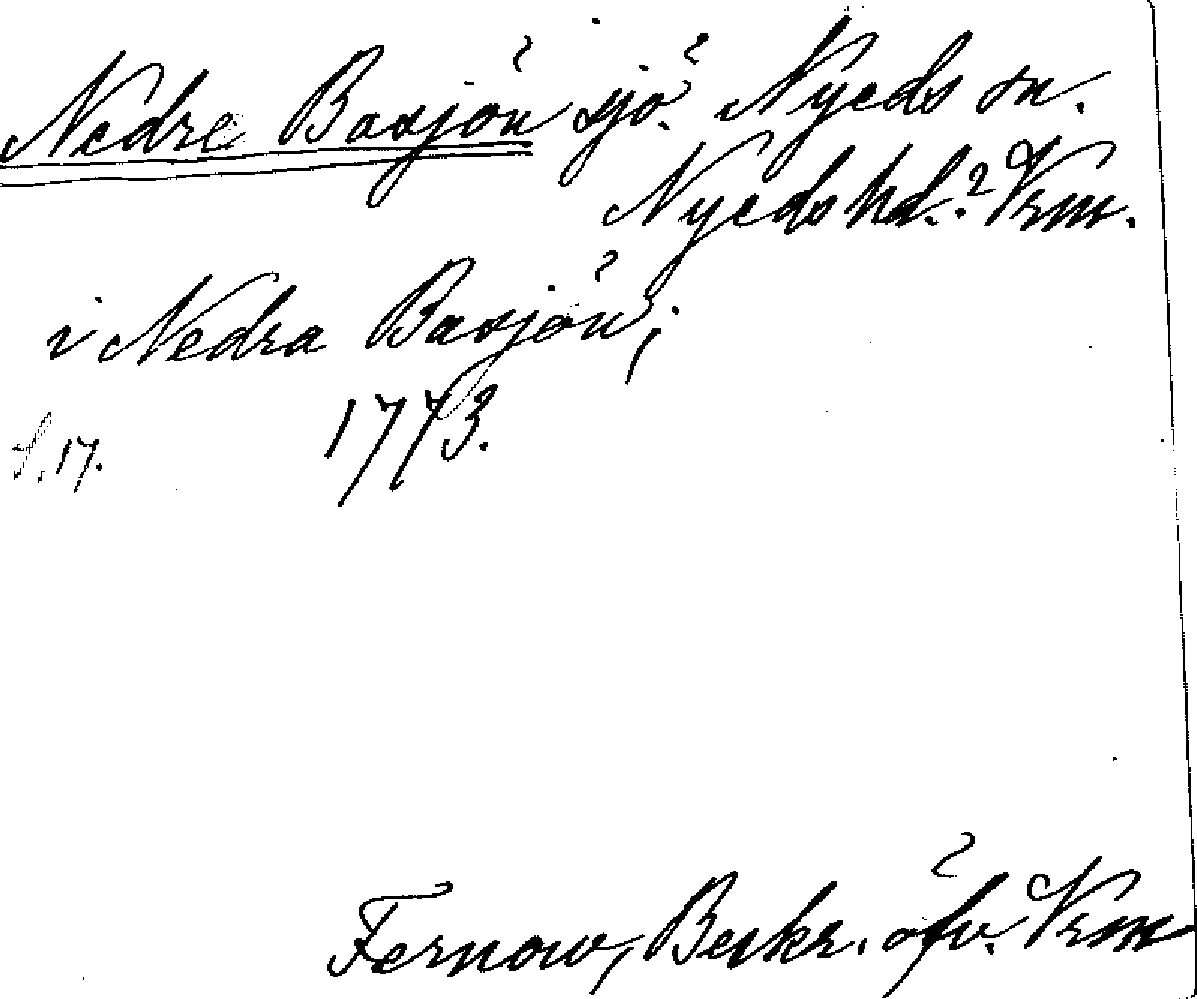 Nedre Basjön sjö. Nyeds sn.
Nyeds hd. Vrm.
i Nedra Basjön;
1773.
S. 17.
Fernow, Beskr. öfv. Vrm